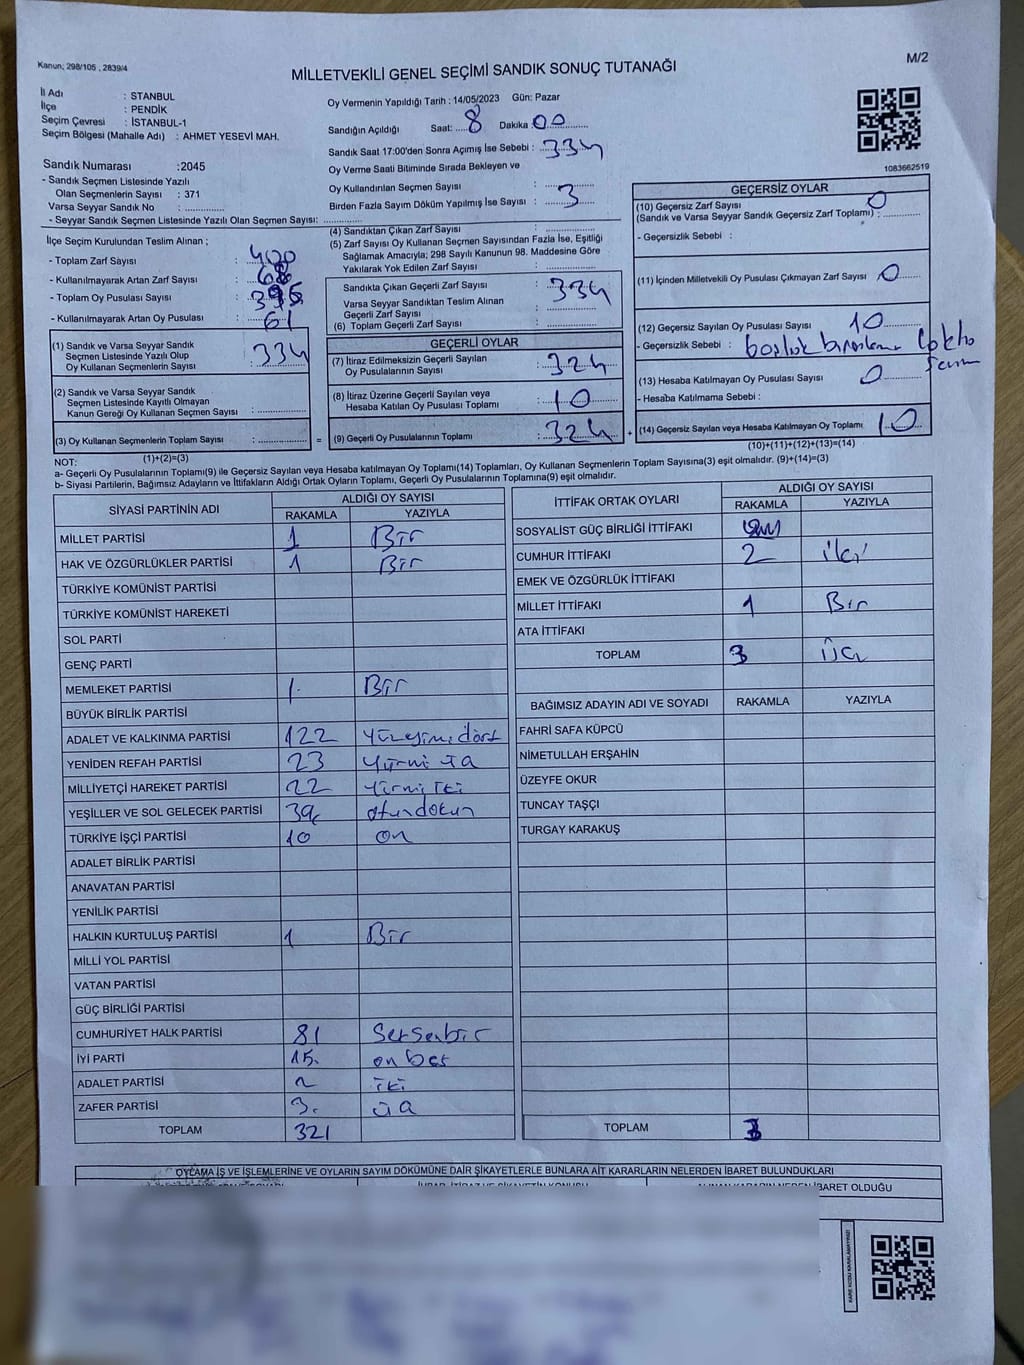 Kanun; 298/105 , 2839/4
M/2
MİLLETVEKİLİ GENEL SEÇİMİ SANDIK SONUÇ TUTANAĞI
İl Adı : STANBUL
İlçe : PENDİK
Seçim Çevresi : İSTANBUL-1
Seçim Bölgesi (Mahalle Adı) : AHMET YESEVİ MAH.
Sandık Numarası :2045
- Sandık Seçmen Listesinde Yazılı
Olan Seçmenlerin Sayısı : 371
Varsa Seyyar Sandık No :
- Seyyar Sandık Seçmen Listesinde Yazılı Olan Seçmen Sayısı:
Oy Vermenin Yapıldığı Tarih : 14/05/2023 Gün: Pazar
Sandığın Açıldığı Saat: 8 Dakika 00
Sandık Saat 17:00'den Sonra Açımış İse Sebebi : 334
Oy Verme Saati Bitiminde Sırada Bekleyen ve
Oy Kullandırılan Seçmen Sayısı :
Birden Fazla Sayım Döküm Yapılmış İse Sayısı : 3
1083662519
İlçe Seçim Kurulundan Teslim Alınan ;
- Toplam Zarf Sayısı : 400
- Kullanılmayarak Artan Zarf Sayısı :
- Toplam Oy Pusulası Sayısı :
- Kullanılmayarak Artan Oy Pusulası : 61
(1) Sandık ve Varsa Seyyar Sandık
Seçmen Listesinde Yazılı Olup
Oy Kullanan Seçmenlerin Sayısı : 334
(2) Sandık ve Varsa Seyyar Sandık
Seçmen Listesinde Kayıtlı Olmayan
Kanun Gereği Oy Kullanan Seçmen Sayısı :
(3) Oy Kullanan Seçmenlerin Toplam Sayısı : =
(1)+(2)=(3)
(4) Sandıktan Çıkan Zarf Sayısı :
(5) Zarf Sayısı Oy Kullanan Seçmen Sayısından Fazla İse, Eşitliği
Sağlamak Amacıyla; 298 Sayılı Kanunun 98. Maddesine Göre
Yakılarak Yok Edilen Zarf Sayısı :
Sandıkta Çıkan Geçerli Zarf Sayısı : 334
Varsa Seyyar Sandıktan Teslim Alınan
Geçerli Zarf Sayısı :
(6) Toplam Geçerli Zarf Sayısı :
GEÇERLİ OYLAR
(7) İtiraz Edilmeksizin Geçerli Sayılan
Oy Pusulalarının Sayısı : 324
(8) İtiraz Üzerine Geçerli Sayılan veya
Hesaba Katılan Oy Pusulası Toplamı : 10
(9) Geçerli Oy Pusulalarının Toplamı : 324 +
GEÇERSİZ OYLAR
(10) Geçersiz Zarf Sayısı
(Sandık ve Varsa Seyyar Sandık Geçersiz Zarf Toplamı) : 0
- Geçersizlik Sebebi :
(11) İçinden Milletvekili Oy Pusulası Çıkmayan Zarf Sayısı : 0
(12) Geçersiz Sayılan Oy Pusulası Sayısı : 10
- Geçersizlik Sebebi :
(13) Hesaba Katılmayan Oy Pusulası Sayısı : 0
- Hesaba Katılmama Sebebi :
(14) Geçersiz Sayılan veya Hesaba Katılmayan Oy Toplamı 10
(10)+(11)+(12)+(13)=(14)
NOT:
a- Geçerli Oy Pusulalarının Toplamı(9) ile Geçersiz Sayılan veya Hesaba katılmayan Oy Toplamı(14) Toplamları, Oy Kullanan Seçmenlerin Toplam Sayısına(3) eşit olmalıdır. (9)+(14)=(3)
b- Siyasi Partilerin, Bağımsız Adayların ve İttifakların Aldığı Ortak Oyların Toplamı, Geçerli Oy Pusulalarının Toplamına(9) eşit olmalıdır.
SİYASİ PARTİNİN ADI ALDIĞI OY SAYISI
RAKAMLA YAZIYLA
MİLLET PARTİSİ 1 Bir
HAK VE ÖZGÜRLÜKLER PARTİSİ 1 Bir
TÜRKİYE KOMÜNİST PARTİSİ
TÜRKİYE KOMÜNİST HAREKETİ
SOL PARTİ
GENÇ PARTİ
MEMLEKET PARTİSİ 1. Bir
BÜYÜK BİRLİK PARTİSİ
ADALET VE KALKINMA PARTİSİ 122
YENİDEN REFAH PARTİSİ 23 Yirmi üç
MİLLİYETÇİ HAREKET PARTİSİ 22 Yirmi iki
YEŞİLLER VE SOL GELECEK PARTİSİ 39 otuzdokuz
TÜRKİYE İŞÇİ PARTİSİ 10 on
ADALET BİRLİK PARTİSİ
ANAVATAN PARTİSİ
YENİLİK PARTİSİ
HALKIN KURTULUŞ PARTİSİ 1 Bir
MİLLİ YOL PARTİSİ
VATAN PARTİSİ
GÜÇ BİRLİĞİ PARTİSİ
CUMHURİYET HALK PARTİSİ 81 Seksenbir
İYİ PARTİ 15. on beş
ADALET PARTİSİ 2 iki
ZAFER PARTİSİ 3. üç
TOPLAM 321
İTTİFAK ORTAK OYLARI ALDIĞI OY SAYISI
RAKAMLA YAZIYLA
SOSYALİST GÜÇ BİRLİĞİ İTTİFAKI
CUMHUR İTTİFAKI 2 iki
EMEK VE ÖZGÜRLÜK İTTİFAKI
MİLLET İTTİFAKI 1 Bir
ATA İTTİFAKI
TOPLAM 3 üç
BAĞIMSIZ ADAYIN ADI VE SOYADI RAKAMLA YAZIYLA
FAHRİ SAFA KÜPCÜ
NİMETULLAH ERŞAHİN
ÜZEYFE OKUR
TUNCAY TAŞÇI
TURGAY KARAKUŞ
TOPLAM 3
OYLAMA İŞ VE İŞLEMLERİNE VE OYLARIN SAYIM DÖKÜMÜNE DAİR ŞİKAYETLERLE BUNLARA AİT KARARLARIN NELERDEN İBARET BULUNDUKLARI
İBARET OLDUĞU